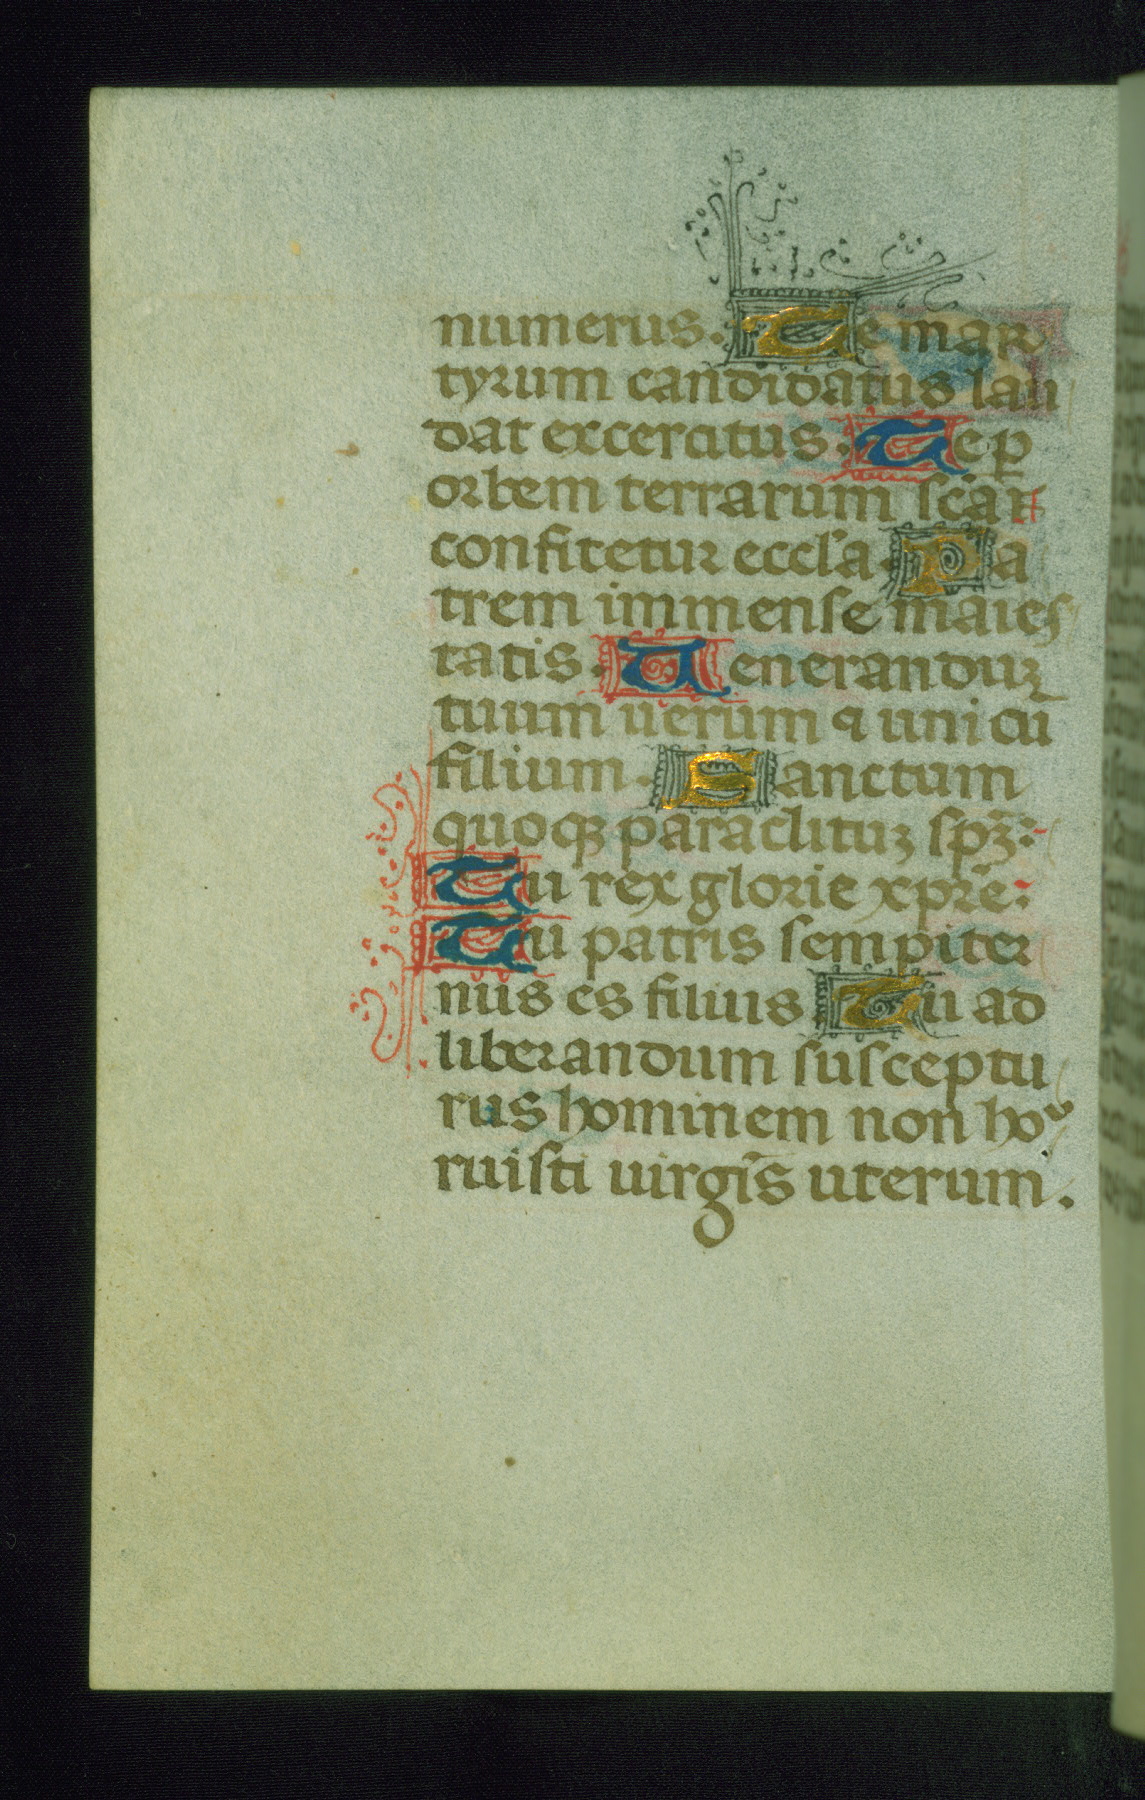 numerus. Te mar
tyrum candidatus lau
dat excercitus. Te ꝑ
orbem terrarum sc̄a
confitetur eccl'a Pa
trem immense maies
tatis. Ueneranduꝫ
tuum uerum ⁊ unicū
filium. Sanctum
quoqꝫ paraclituꝫ sp̄ꝫ:
Tu rex glorie xpr̄e:
Tu patris sempiter
nus es filius Tu ad
liberandum susceptu
rus hominem non ho
ruisti uirgīs uterum.